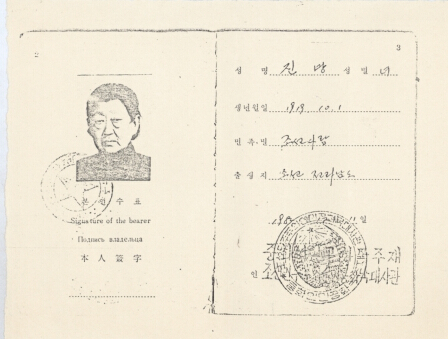 2
본인수표
Signature of the bearer
Подпись владельца
本人簽字
3
성 명 진 방 성 별 녀
생년월일 1919. 10. 1
민족·별 조선사람
출생지 조선 전라남도
일
주재
대사관